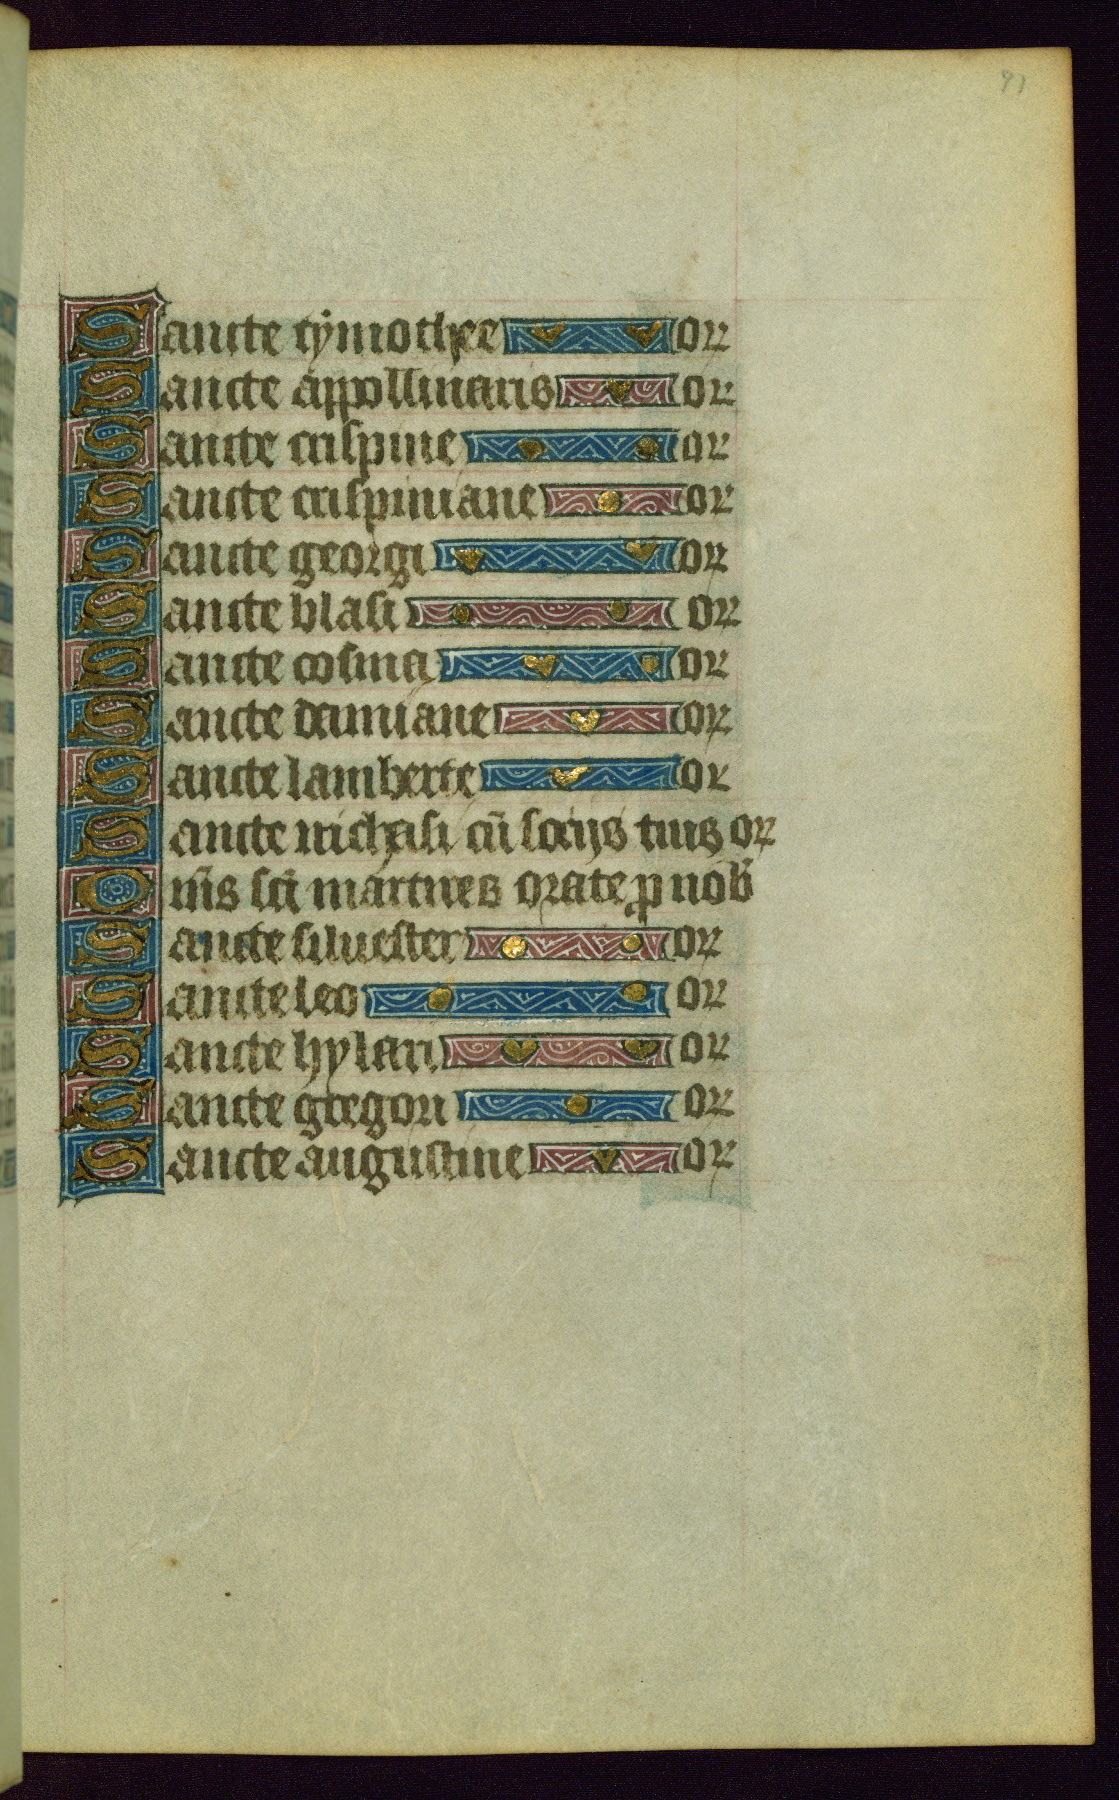 91
Sancte tÿmothee or
Sancte appollinaris or
Sancte crispine or
Sancte crispiniane or
Sancte georgi or
Sancte blasi or
Sancte cosma or
Sancte damiane or
Sancte lamberte or
Sancte nichasi cū socijs tuis or
Om̄s sc̄i martires orate pro nob̄
Sancte siluester or
Sancte leo or
Sancte hylari or
Sancte gregori or
Sancte augustine or